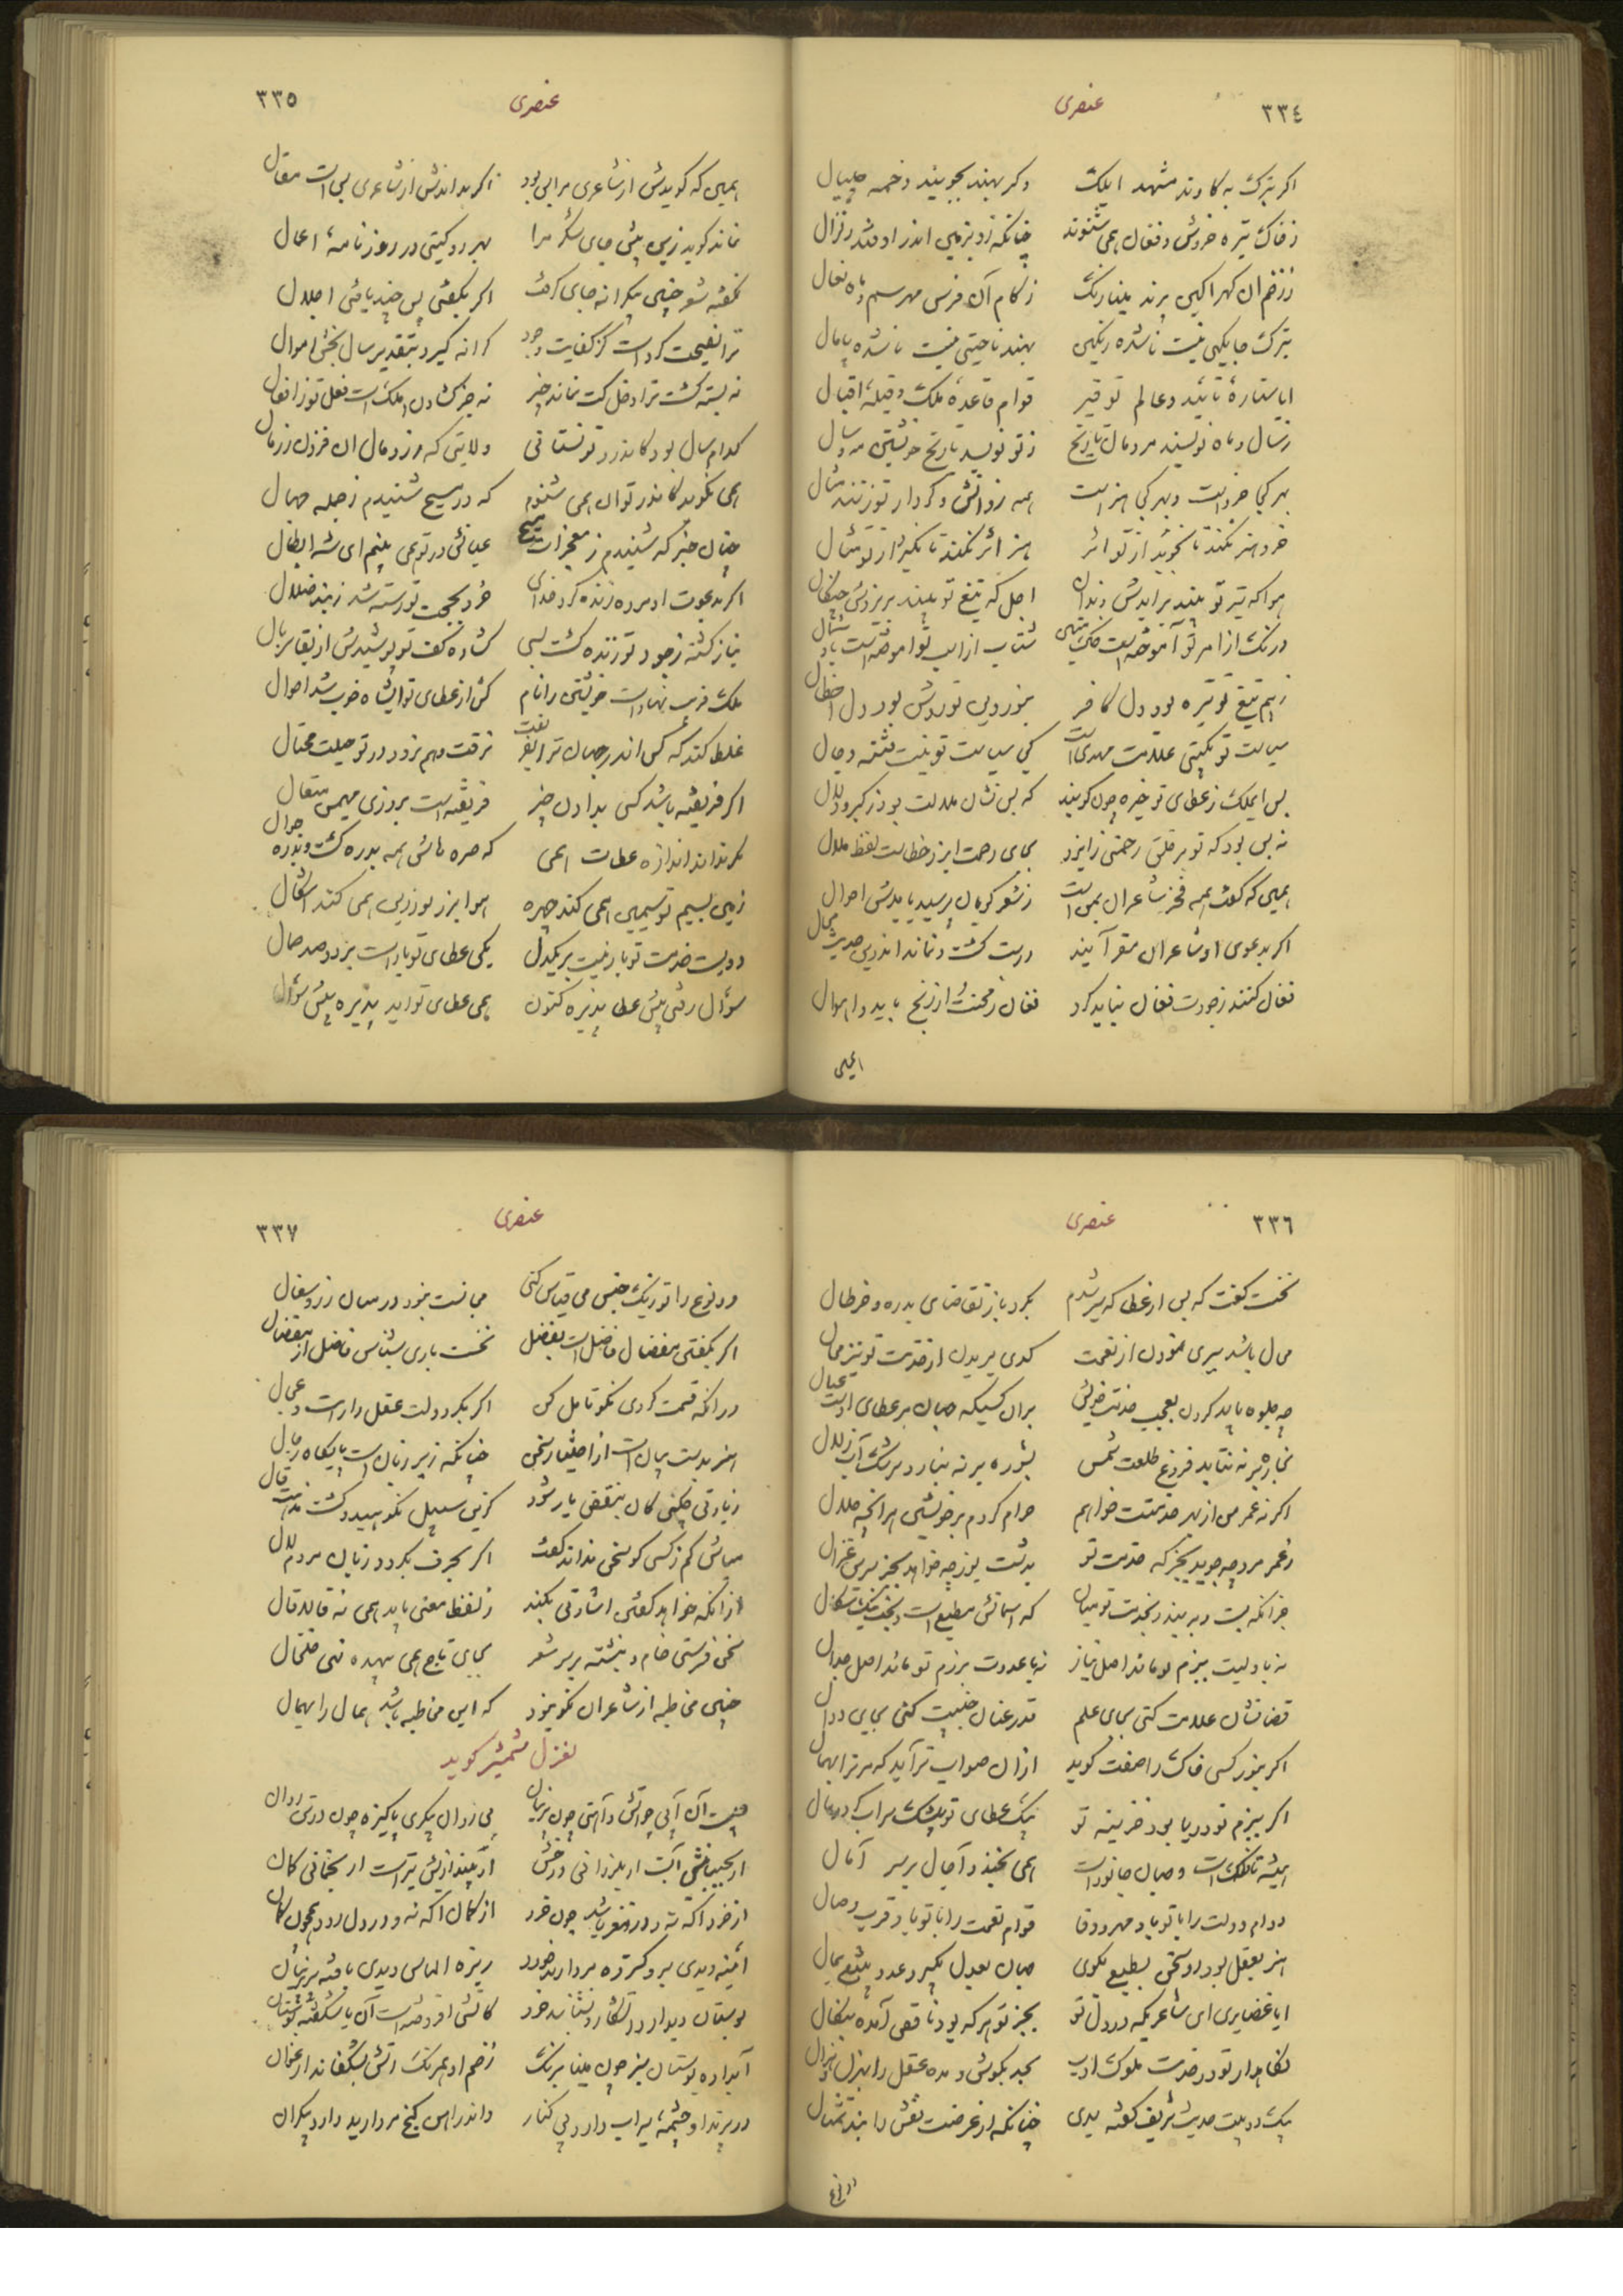 ٣٣٤
عنصری
اگر بترک بکاوند مشهد ایلک وگر بهند بجویند دخمه چیپال
ز خاک تیره خروش و فغان همی شنوند چنانکه زو بزمین اندر اوفتد زلزال
بترک جایگهی نیست ناشده رنگین بهند ناحیتی نیست ناشده پامال
ایا ستارهٔ تائید و عالم توقیر قوام قاعدهٔ ملک و قبلهٔ اقبال
ز سال و ماه نویسند مردمان تاریخ ز تو نویسد تاریخ خویشتن مه و سال
بهر کجا خرد است و بهر کجا هنر است همه ز دانش و کردار تو زنند مثال
خرد هنر نکند تا نجوید از تو اثر هنر اثر نکند تا نگیرد از تو مثال
هوا که تیر تو بیند برآیدش دندان اجل که تیغ تو بیند بریزدش چنگال
ز بیم تیغ تو تیره بود دل کافر بنور دین تو روشن بود دل
سیاست تو بگیتی علامت مهدی است کجا سیاست تو نیست فتنه دجال
بس ای ملک ز عطای تو خیره چون گویند که بس نشان ملالت بود ز کبر و دلال
نه بس بود که تو بر خلق رحمتی ز ایزد بجای رحمت ایزد خطاست لفظ ملال
همین که گفت همه فخر شاعران بمن است ز شعر گویان پرسید بایدش احوال
اگر بدعوی او شاعران مقر آیند درست گشت و نماند اندرین حدیث محال
فغان کنند ز جودت فغان نباید کرد فغان ز محنت و از رنج باید و اهوال
همین
٣٣٥
عنصری
همین که گویدش از شاعری مرا بس بود اگر بداندش از شاعری بس است مقال
نماند گوید زین بیش جای شکر مرا بهر دو گیتی در روزنامهٔ اعمال
نگفته شعر چنین بیکرانه جای گرفت اگر بگفتی پس چند یافتی اجلال
نه بسته گشت ترا دخل کت نماند چیز نه جز گشادن ملک است فعل تو ز افعال
کدام سال بود کاندرو تو نستانی ولایتی که زر و مال آن فزون ز رمال
همی نگوید کاندر تو آن همی شنوم که در مسیح شنیدم ز جمله جهال
چنان خبر که شنیدم ز معجزات مسیح عیانش در تو همی بینم ای شه ابطال
اگر بدعوت او مرده زنده کرد خدای خرد بحجت تو رسته شد ز بند ضلال
نیاز کشته ز جود تو زنده گشت بسی گشاده کف تو پوشیدش از بقا سربال
ملک فریب نهاده است خویشتن را نام کش از عطای تو ایشاه خوب شد احوال
غلط کند که کس اندر جهان ترا نفریفت نرفت و هم نرود در تو حیلت محتال
اگر فریفته باشد کسی بدادن چیز فریفته است بروزی مهیمن متعال
مگر نداند اندازهٔ عطات همی که صره‌هاش همه بدره گشت و بدره جوال
زمین بسیم تو سیمین همی کند چهره هوا بزر تو زرین همی کند اشکال
دویست خدمت تو بار نیست بر یکدل یکی عطای تو بار است بر دو صد حمال
سؤال رفتی پیش عطا پذیره کنون همی عطای تو آید پذیره پیش سؤال
٣٣٦
عنصری
نخست گفت که بس از عطا که سیر شدم بکرد باز تقاضای بدره و خرطال
محال باشد سیری نمودن از نعمت کدی بریدن از خدمت تو نیز محال
چه جلوه باید کردن بعجب خدمت خویش بران کسیکه جهان بر عطای اوست عیال
بخاره بر نه بتابد فروغ طلعت شمس بشوره بر نه ببارد سرشک آب زلال
اگر نه عمر من از بهر خدمتت خواهم حرام کردم بر خویشتن هر آنچه حلال
ز عمر مرد چه جوید بجز که خدمت تو بدشت یوز چه خواهد بجز سرین غزال
جز آنکه بست و ببیند بخدمت تو میان که آسمانش مطیع است و بخت نیک سکال
نه با ولیت ببزم تو ماند اصل نیاز نه با عدوت برزم تو ماند اصل جدال
قضا نشان علامت کنی بجای علم قدر عنان جنیبت کنی بجای دوال
اگر بنور کسی خاک را صفت گوید از آن صواب‌تر آید که مر ترا بهمال
اگر ببزم تو دریا بود خزینه تو بیک عطای تو بیشک سراب گردد مال
همیشه تا فلک است و جهان و جانور است همی بخندد آجال بر سر آمال
دوام دولت را با تو باد مهر و وفا قوام نعمت را با تو باد قرب و صال
هنر بعقل بود او سخن بطبع نکوی جهان بعدل بگیر و عدو بتیغ بمال
ایا غضایری ای شاعریکه در دل تو بجز تو هر که بود ناقص آمده بکمال
نگاهدار تو در خدمت ملوک ادب بجد بکوش و مده عقل را بهزل و هزال
یک دو بیت حدیث شریف گفته بدی چنانکه از غرضت نقش را نبد تمثال
دو نوع
٣٣٧
عنصری
دو نوع را تو ز یک جنس می قیاس کنی مجانست نبود در میان زر و سفال
اگر بگفتی مفضال فاضل است بفضل نخست باری بشناس فاضل از مفضال
ور آنکه قسمت کردی نکو تامل کن اگر بگرد دولت عقل داراست و عمال
هنر بدست بیان است از اختیار سخن چنانکه زیر زبان است پایگاه رجال
مباش کم ز کسی کو سخن نداند گفت اگر بحرف بگردد زبان مردم لال
از آنکه خواهد گفتن اشارتی بکند ز لفظ معنی باید همی نه قالاقال
سخن فرستی خام و نبشته بر سر شعر بجای تاج همی بیهده نهی خلخال
چنین مخاطبه از شاعران نکو نبود که این مخاطبه باشد همال را بهمال
لغزل شمشیر گوید
چیست آن آبی چو آتش و آهنی چون پرنیان بی روان پیکری پاکیزه چون در تن روان
ار بجنبانیش آبست ار بلرزانی درخش ار بیندازیش تیر است ار بخمانی کمان
از خرد آگه نه و در مغز باشد چون خرد از گمان آگه نه و در دل رود همچون گمان
آینه دیدی برو گسترده مروارید خورد ریزهٔ الماس دیدی بافته بر پرنیان
بوستان دیدار و آتشکار و نشناسد خرد کاتش افروخته است آن یا شکفته بوستان
آبداده بوستان سبز چون مینا برنگ زخم او همرنگ آتش بشکفاند ارغوان
در پرند او چشمهٔ سیماب دارد بی کنار واندر آهن گنج مروارید دارد بیکران